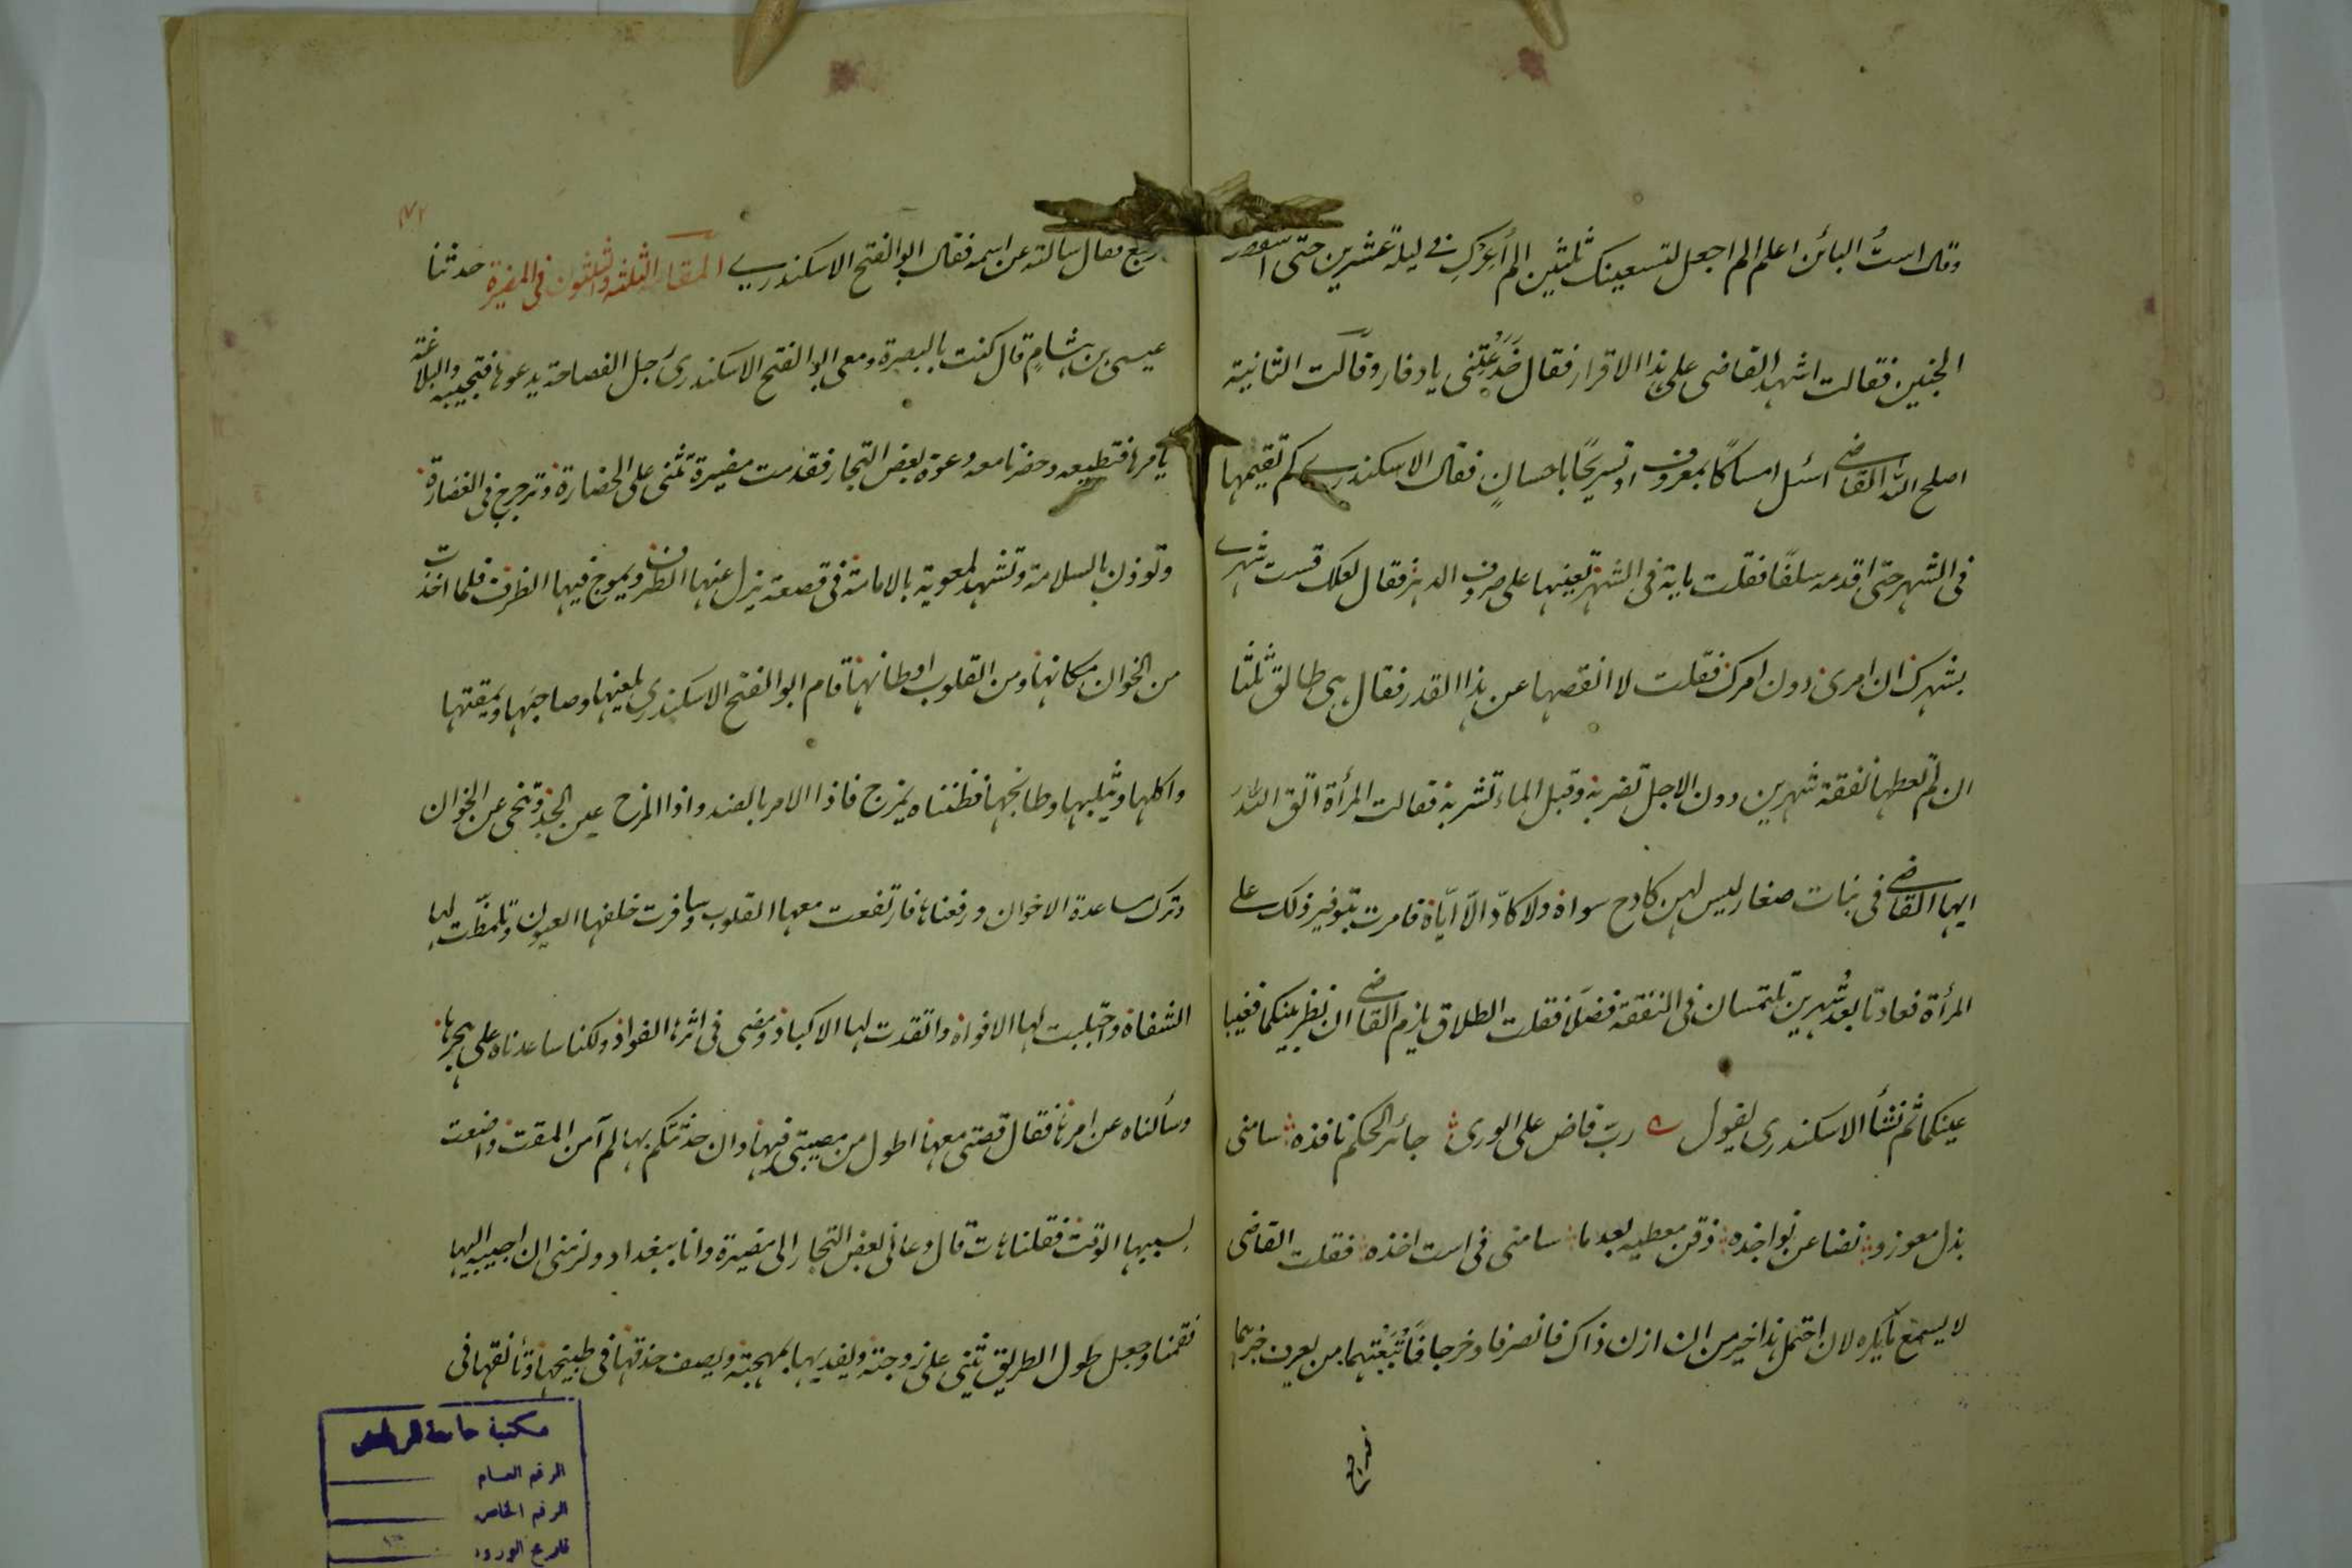 وقال است البائن اعلم الم اجعل لتسعينك ثلثين الم أعرك في ليلة عشرين حتى
الجنين فقالت اشهد القاضى على هذا الاقرار فقال خَدَعْتِنى يا دفار وقالت الثانية
اصلح الله القاضي اسئل امساكًا بمعروف او تسريحًا باحسانٍ فقال الاسكندري كم تقيمها
فى الشهر حتى اقدمه سلفًا فقلت ماية فى الشهر تعينها على صروف الدهر فقال لعلك قست شهري
بشهرك ان امرى دون امرك فقلت لا انقصها عن هذا القدر فقال هى طالق ثلثًا
ان لم تعطها نفقة شهرين دون الاجل تضربه وقبل الماء تشربه فقالت المرأة اتق الله
ايها القاضي فى بنات صغار ليس لهن كادح سواه ولا كادّ الّا ايّاه فامرت بتوفير ذلك على
المرأة فعادتا بعد شهرين تلتمسان فى النفقة فضلا فقلت الطلاق يلزم القاضي ان نظر بينكما فغيبا
عينكما ثم نشأ الاسكندرى يقول رب قاض على الورى جائر الحكم نافذه سامنى
بذل معوزو نضا عن نواجذه ذقن معطيه بعدما سامنى فى است اخذه فقلت القاضى
لا يسمع ما يكره لان احتمل هذا خير من ان ازن ذاك فانصرفا وخرجا فاتبعتهما من يعرف خبرهما
فرجع
رجع فقال سالته عن اسمه فقال ابو الفتح الاسكندري المقامة الثلثة والثلثون فى المضيرة حدثنا
عيسى بن هشام قال كنت بالبصرة ومعى ابو الفتح الاسكندرى رجل الفصاحة يدعوها فتجيبه والبلاغة
يأمرها فتطيعه وحضرنا معه دعوة بعض التجار فقدمت مضيرة تثنى على الحضارة وترجرج فى الغضارة
وتوذن بالسلامة وتشهد لمعوية بالامامة فى قصعة يزل عنها الطرف ويموج فيها الظرف فلما اخذت
من الخوان مكانها ومن القلوب اوطانها قام ابو الفتح الاسكندرى يلعنها وصاحبها ويمقتها
واكلها ويثلبها وطابخها فظنناه يمزح فاذا الامر بالضد واذا المزح عين الجد وتنحى عن الخوان
وترك مساعدة الاخوان ورفعناها فارتفعت معها القلوب وسافرت خلفها العيون وتلمظت لها
الشفاه وتحلبت لها الافواه واتقدت لها الاكباد ومضى فى اثرها الفواد ولكنا ساعدناه على هجرها
وسألناه عن امرها فقال قصتى معها اطول من مصيبتى فيها وان حدثتكم بها لم آمن المقت واضعت
بسببها الوقت فقلنا هات قال دعانى بعض التجار الى مضيرة وانا ببغداد ولزمنى ان اجيبه اليها
فقمنا وجعل طول الطريق يثنى على زوجته ويفديها بمهجته ويصف حذقها فى طبيخها وتأنقها فى
مكتبة جامعة الرياض
الرقم العام
الرقم الخاص
تاريخ الورود